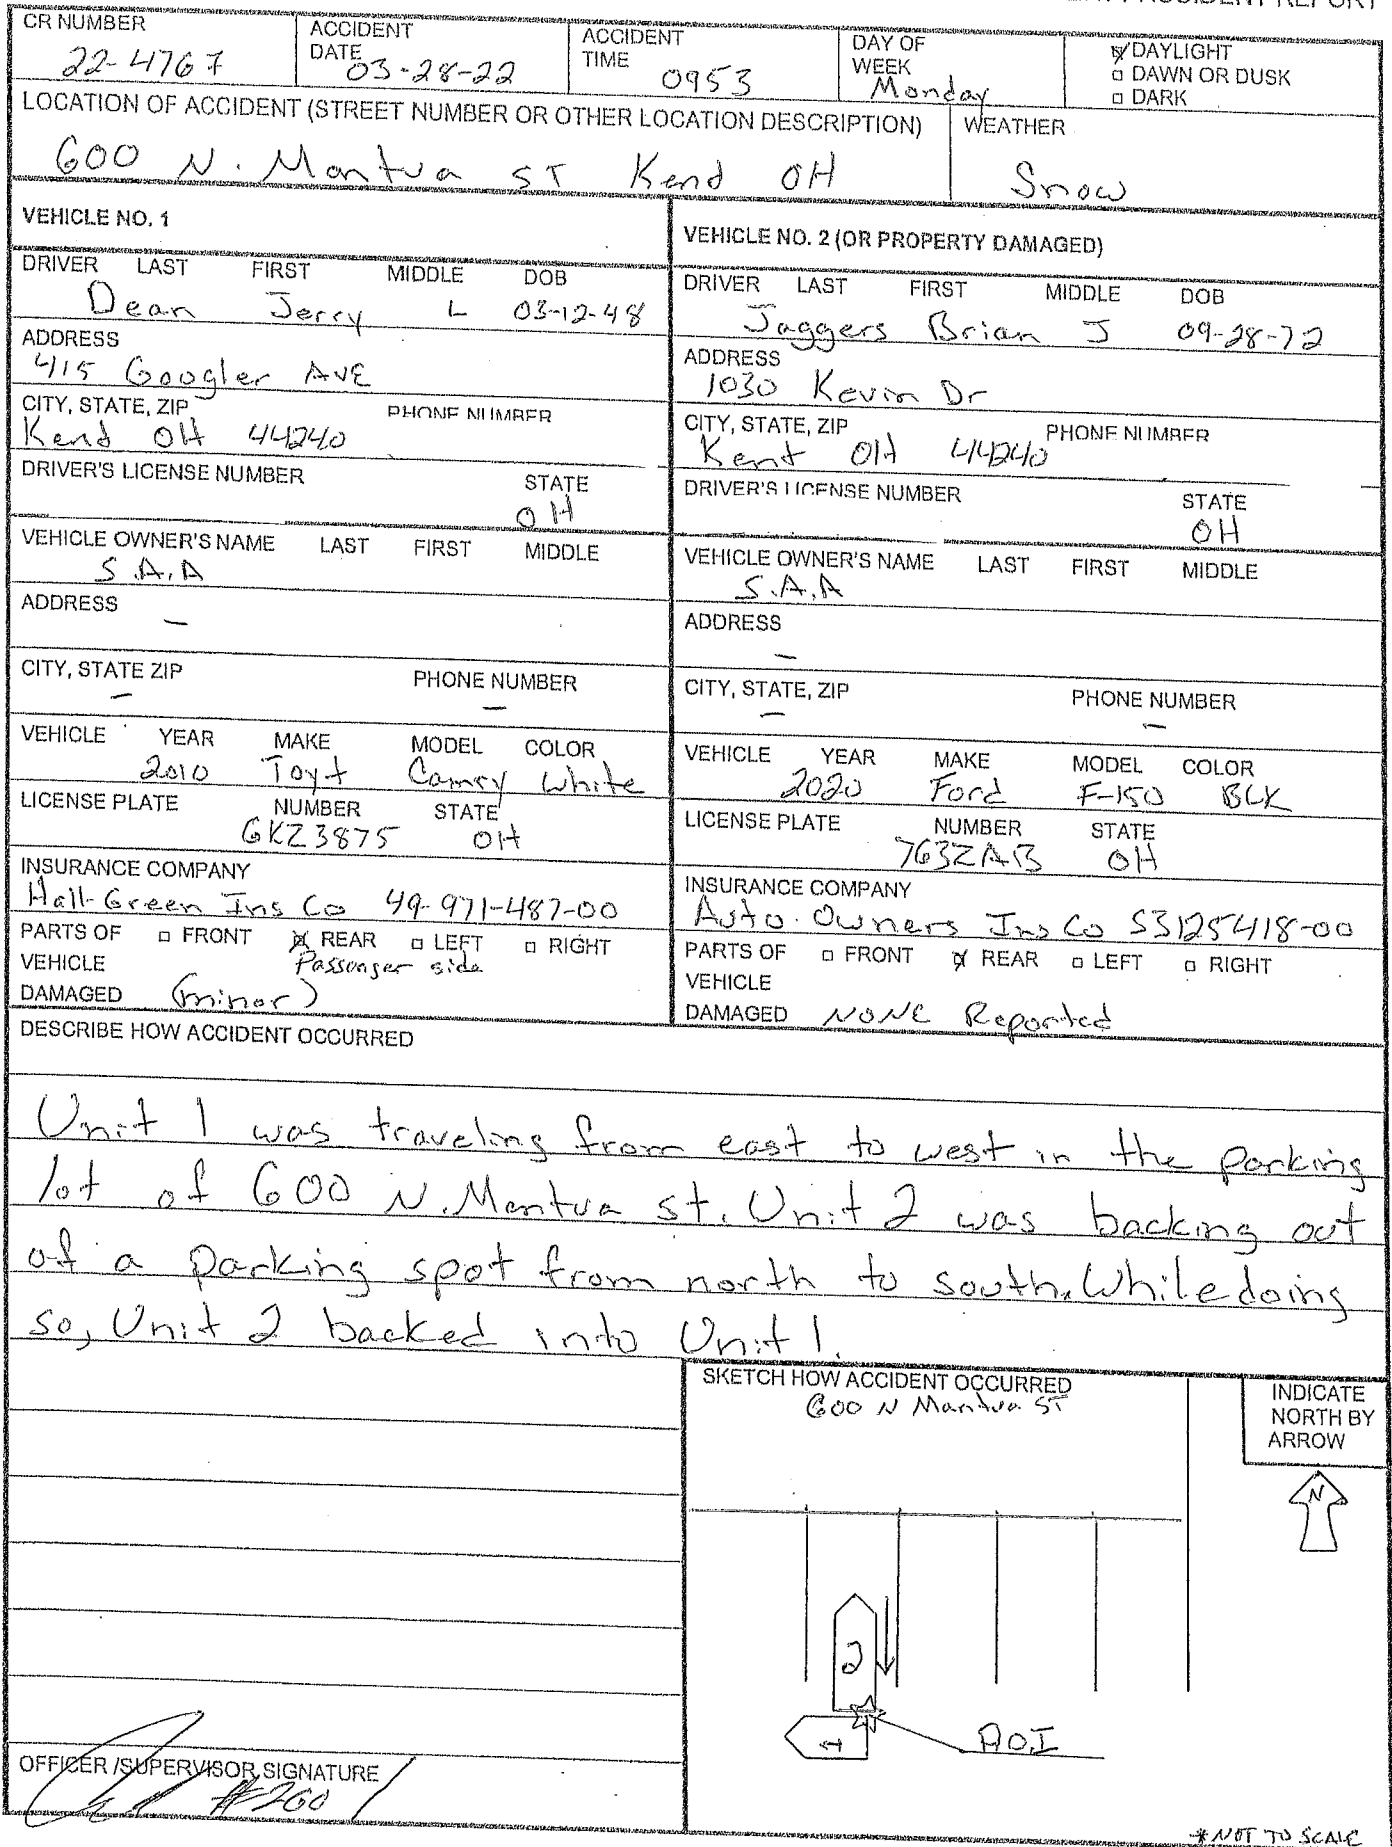 ACCIDENT REPORT
CR NUMBER
22-4767
ACCIDENT DATE 03-28-22
ACCIDENT TIME 0953
DAY OF WEEK Monday
☑ DAYLIGHT
□ DAWN OR DUSK
□ DARK
LOCATION OF ACCIDENT (STREET NUMBER OR OTHER LOCATION DESCRIPTION)
600 N. Mantua ST Kend OH
WEATHER
Snow
VEHICLE NO. 1
DRIVER LAST FIRST MIDDLE DOB
Dean Jerry L 03-12-48
ADDRESS
415 Googler AVE
CITY, STATE, ZIP PHONE NUMBER
Kend OH 44240
DRIVER'S LICENSE NUMBER STATE
OH
VEHICLE OWNER'S NAME LAST FIRST MIDDLE
S.A.A
ADDRESS
—
CITY, STATE ZIP PHONE NUMBER
— —
VEHICLE YEAR MAKE MODEL COLOR
2010 Toyt Camry white
LICENSE PLATE NUMBER STATE
GKZ3875 OH
INSURANCE COMPANY
Hall-Green Ins Co 49-971-487-00
PARTS OF □ FRONT ☒ REAR □ LEFT □ RIGHT
VEHICLE Passenger side
DAMAGED (minor)
VEHICLE NO. 2 (OR PROPERTY DAMAGED)
DRIVER LAST FIRST MIDDLE DOB
Jaggers Brian J 09-28-72
ADDRESS
1030 Kevin Dr
CITY, STATE, ZIP PHONE NUMBER
Kent OH 44240
DRIVER'S LICENSE NUMBER STATE
OH
VEHICLE OWNER'S NAME LAST FIRST MIDDLE
S.A.A
ADDRESS
—
CITY, STATE, ZIP PHONE NUMBER
— —
VEHICLE YEAR MAKE MODEL COLOR
2020 Ford F-150 BLK
LICENSE PLATE NUMBER STATE
763ZAB OH
INSURANCE COMPANY
Auto-Owners Ins Co 53125418-00
PARTS OF □ FRONT ☒ REAR □ LEFT □ RIGHT
VEHICLE
DAMAGED NONE Reported
DESCRIBE HOW ACCIDENT OCCURRED
Unit 1 was traveling from east to west in the parking
lot of 600 N. Mantua st. Unit 2 was backing out
of a parking spot from north to south. While doing
so, Unit 2 backed into Unit 1.
SKETCH HOW ACCIDENT OCCURRED
600 N Mantua ST
INDICATE
NORTH BY
ARROW
N
2
1
A.O.I
OFFICER / SUPERVISOR SIGNATURE
#260
*NOT TO SCALE